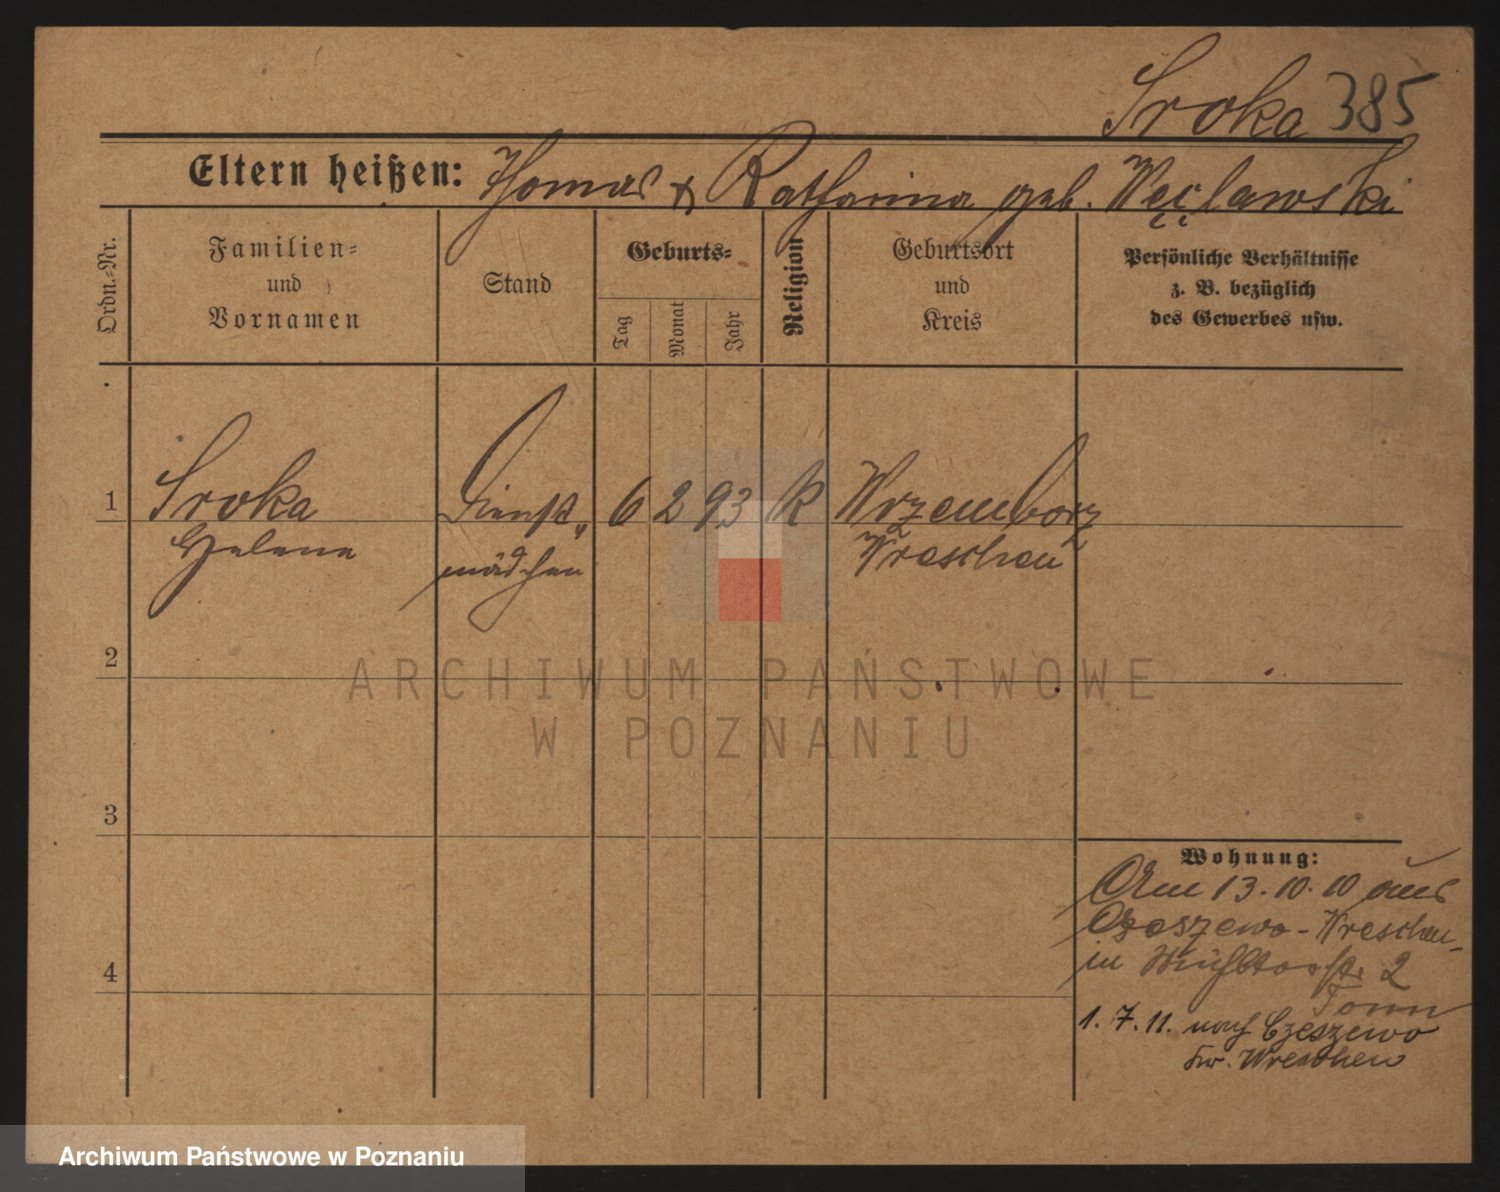 Sroka 385
Eltern heißen: Thomas & Katharina geb. Węclawski
Ordn.-Nr.
Familien- und Vornamen
Stand
Geburts-
Tag
Monat
Jahr
Religion
Geburtsort und Kreis
Persönliche Verhältnisse
z. B. bezüglich
des Gewerbes usw.
1 Sroka Dienst„ 6 2 93 K Wrzemborz
Helene mädchen Wreschen
2
3
4
Wohnung:
Am 13.10.10 aus
Czeszewo-Wreschen
in Mühltorstr. 2
1.7.11. nach Czeszewo
Kr. Wreschen
ARCHIWUM PAŃSTWOWE
W POZNANIU
Archiwum Państwowe w Poznaniu